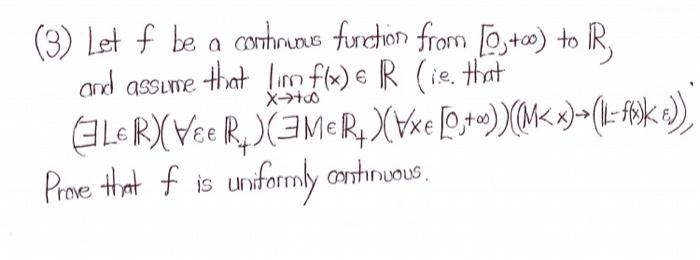 (3) Let f be a continuous function from [0,+∞) to ℝ,
and assume that lim f(x) ∈ ℝ (i.e. that
x→+∞
(∃L∈ℝ)(∀ε∈ℝ₊)(∃M∈ℝ₊)(∀x∈[0,+∞))((M<x)→(|L-f(x)|<ε))).
Prove that f is uniformly continuous.